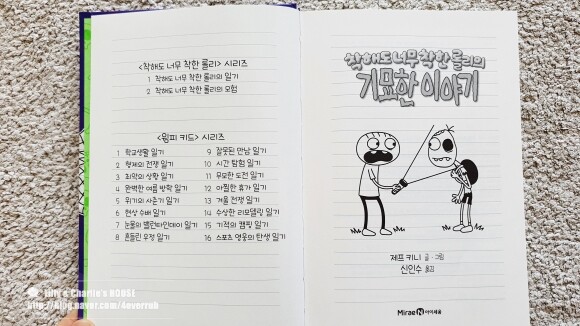 <착해도 너무 착한 롤리> 시리즈
1 착해도 너무 착한 롤리의 일기
2 착해도 너무 착한 롤리의 모험
<윔피 키드> 시리즈
1 학교생활 일기
2 형제의 전쟁 일기
3 최악의 상황 일기
4 완벽한 여름 방학 일기
5 위기의 사춘기 일기
6 현상 수배 일기
7 눈물의 밸런타인데이 일기
8 흔들린 우정 일기
9 잘못된 만남 일기
10 시간 탐험 일기
11 무모한 도전 일기
12 아찔한 휴가 일기
13 겨울 전쟁 일기
14 수상한 리모델링 일기
15 기적의 캠핑 일기
16 스포츠 영웅의 탄생 일기
착해도 너무 착한 롤리의
기묘한 이야기
제프 키니 글·그림
신인수 옮김
Mirae N 아이세움
Lilly & Charlie's HOUSE
http://blog.naver.com/4everrub